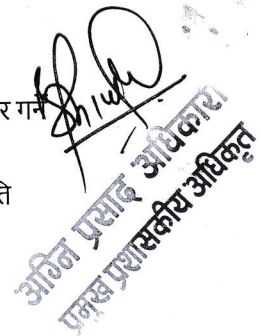 र गर्न
ति
अग्नि प्रसाद अधिकारी
प्रमुख प्रशासकीय अधिकृत